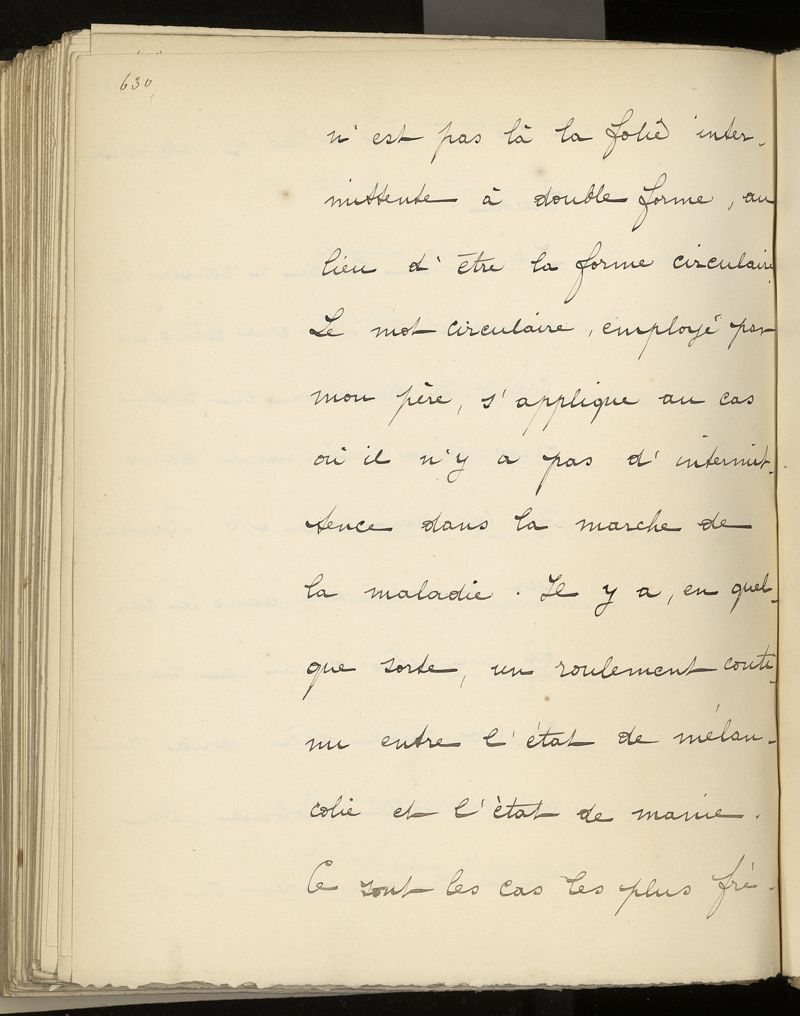 630
n'est pas là la folie inter-
mittente à double forme, au
lieu d'être la forme circulaire.
Le mot circulaire, employé par
mon père, s'applique au cas
où il n'y a pas d'intermit-
tence dans la marche de
la maladie. Il y a, en quel-
que sorte, un roulement conti-
nu entre l'état de mélan-
colie et l'état de manie.
Ce sont les cas les plus fré-